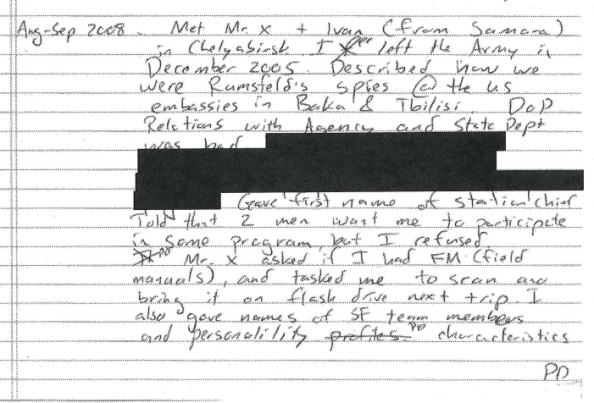 Aug-Sep 2008. Met Mr. X + Ivan (from Samara)
in Chelyabinsk I left the Army in
December 2005. Described how we
were Rumsfeld's spies @ the US
embassies in Baka & Tbilisi. DoD
Relations with Agency and State Dept
was bad
Gave first name of station chief
Told that 2 men want me to participate
in some program, but I refused
PD Mr. X asked if I had FM (field
manuals), and tasked me to scan and
bring it on flash drive next trip. I
also gave names of SF team members
and personality profiles PD characteristics
PD